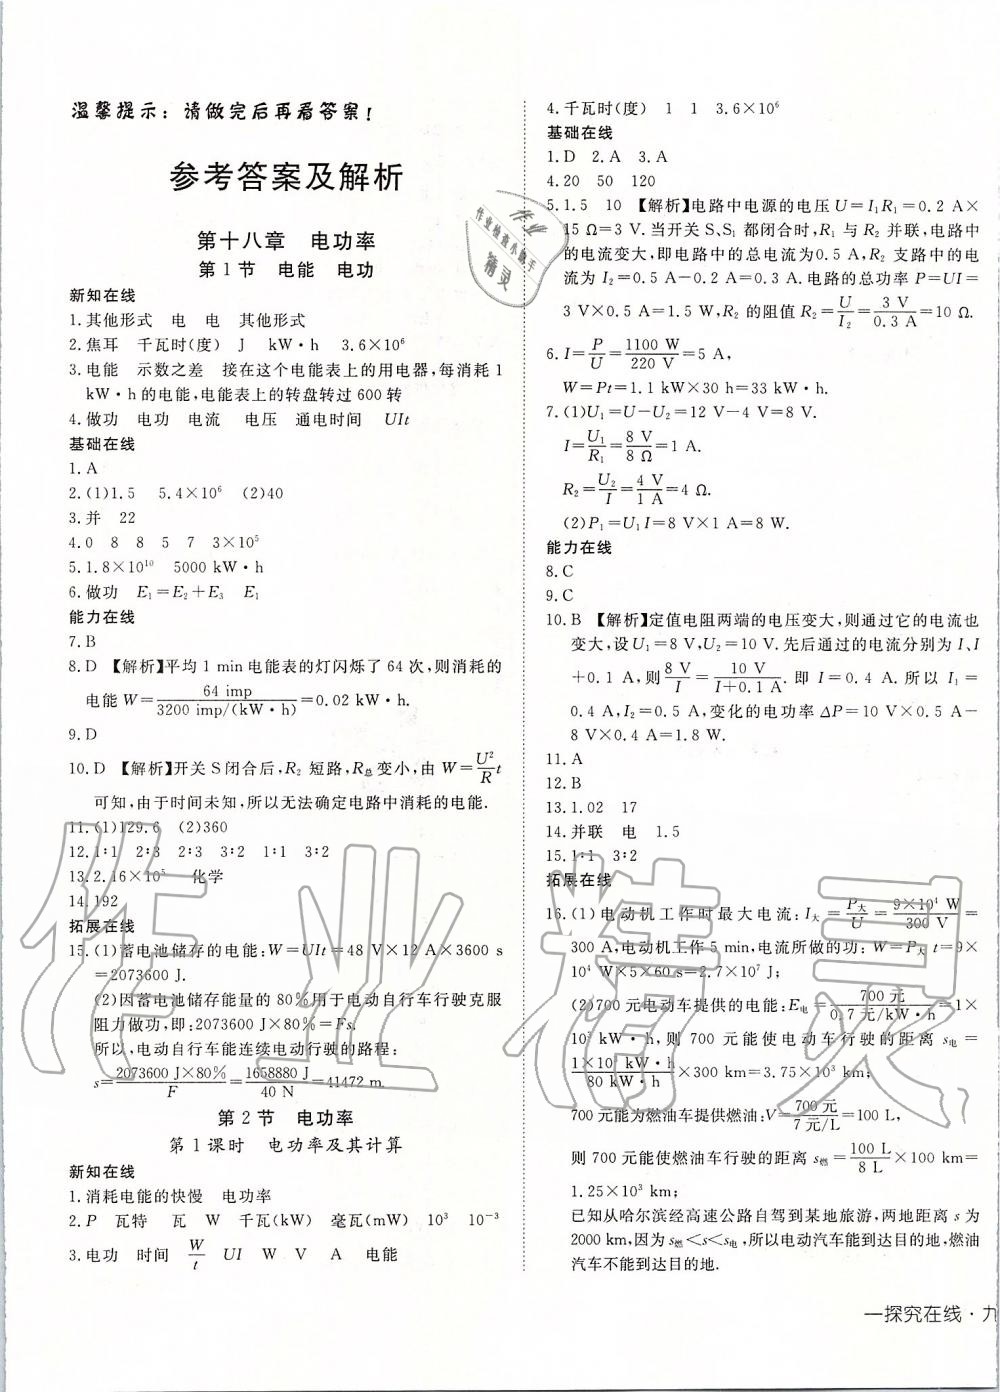 温馨提示:请做完后再看答案!
参考答案及解析
第十八章 电功率
第1节 电能 电功
新知在线
1.其他形式 电 电 其他形式
2.焦耳 千瓦时(度) J kW·h 3.6×10⁶
3.电能 示数之差 接在这个电能表上的用电器,每消耗1
kW·h的电能,电能表上的转盘转过600转
4.做功 电功 电流 电压 通电时间 UIt
基础在线
1.A
2.(1)1.5 5.4×10⁶ (2)40
3.并 22
4.0 8 8 5 7 3×10⁵
5.1.8×10¹⁰ 5000 kW·h
6.做功 E₁=E₂+E₃ E₁
能力在线
7.B
8.D 【解析】平均1 min电能表的灯闪烁了64次,则消耗的
电能W=64 imp/3200 imp/(kW·h)=0.02 kW·h.
9.D
10.D 【解析】开关S闭合后,R₂短路,R总变小,由W=U²/R t
可知,由于时间未知,所以无法确定电路中消耗的电能.
11.(1)129.6 (2)360
12.1∶1 2∶3 3∶2 1∶1 3∶2
13.2.16×10⁵ 化学
14.192
拓展在线
15.(1)蓄电池储存的电能:W=UIt=48 V×12 A×3600 s
=2073600 J.
(2)因蓄电池储存能量的80%用于电动自行车行驶克服
阻力做功,即:2073600 J×80%=Fs.
所以,电动自行车能连续电动行驶的路程:
s=2073600 J×80%/F=1658880 J/40 N=41472 m.
第2节 电功率
第1课时 电功率及其计算
新知在线
1.消耗电能的快慢 电功率
2.P 瓦特 瓦 W 千瓦(kW) 毫瓦(mW) 10³ 10⁻³
3.电功 时间 W/t UI W V A 电能
4.千瓦时(度) 1 1 3.6×10⁶
基础在线
1.D 2.A 3.A
4.20 50 120
5.1.5 10 【解析】电路中电源的电压U=I₁R₁=0.2 A×
15 Ω=3 V.当开关S、S₁都闭合时,R₁与R₂并联,电路中
的电流变大,即电路中的总电流为0.5 A,R₂支路中的电
流为I₂=0.5 A-0.2 A=0.3 A.电路的总功率P=UI=
3 V×0.5 A=1.5 W,R₂的阻值R₂=U/I₂=3 V/0.3 A=10 Ω.
6.I=P/U=1100 W/220 V=5 A,
W=Pt=1.1 kW×30 h=33 kW·h.
7.(1)U₁=U-U₂=12 V-4 V=8 V.
I=U₁/R₁=8 V/8 Ω=1 A.
R₂=U₂/I=4 V/1 A=4 Ω.
(2)P₁=U₁I=8 V×1 A=8 W.
能力在线
8.C
9.C
10.B 【解析】定值电阻两端的电压变大,则通过它的电流也
变大,设U₁=8 V,U₂=10 V.先后通过的电流分别为I、I
+0.1 A,则8 V/I=10 V/I+0.1 A.即I=0.4 A.所以I₁=
0.4 A,I₂=0.5 A,变化的电功率ΔP=10 V×0.5 A-
8 V×0.4 A=1.8 W.
11.A
12.B
13.1.02 17
14.并联 电 1.5
15.1∶1 3∶2
拓展在线
16.(1)电动机工作时最大电流:I大=P大/U=9×10⁴ W/300 V=
300 A,电动机工作5 min,电流所做的功:W=P大t=9×
10⁴ W×5×60 s=2.7×10⁷ J.
(2)700元电动车提供的电能:E电=700元/0.7元/kW·h=1×
10³ kW·h,则700元能使电动车行驶的距离s电=
1×10³ kW·h/80 kW·h×300 km=3.75×10³ km,
700元能为燃油车提供燃油:V=700元/7元/L=100 L,
则700元能使燃油车行驶的距离s燃=100 L/8 L×100 km=
1.25×10³ km;
已知从哈尔滨经高速公路自驾到某地旅游,两地距离s为
2000 km,有s燃<s<s电,所以电动汽车能到达目的地,燃油
汽车不能到达目的地.
一探究在线·九
作业
作业检查小助手
精灵
作业精灵